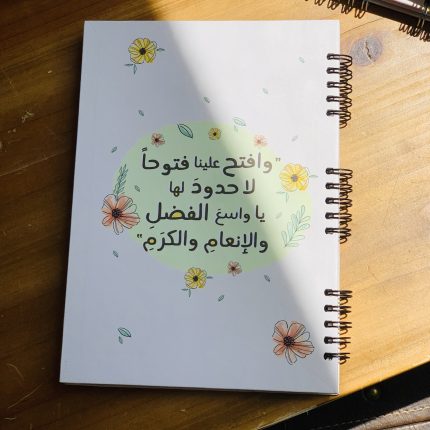 "وافتح علينا فتوحاً
لا حدودَ لها
يا واسعَ الفضلِ
والإنعامِ والكرَمِ"